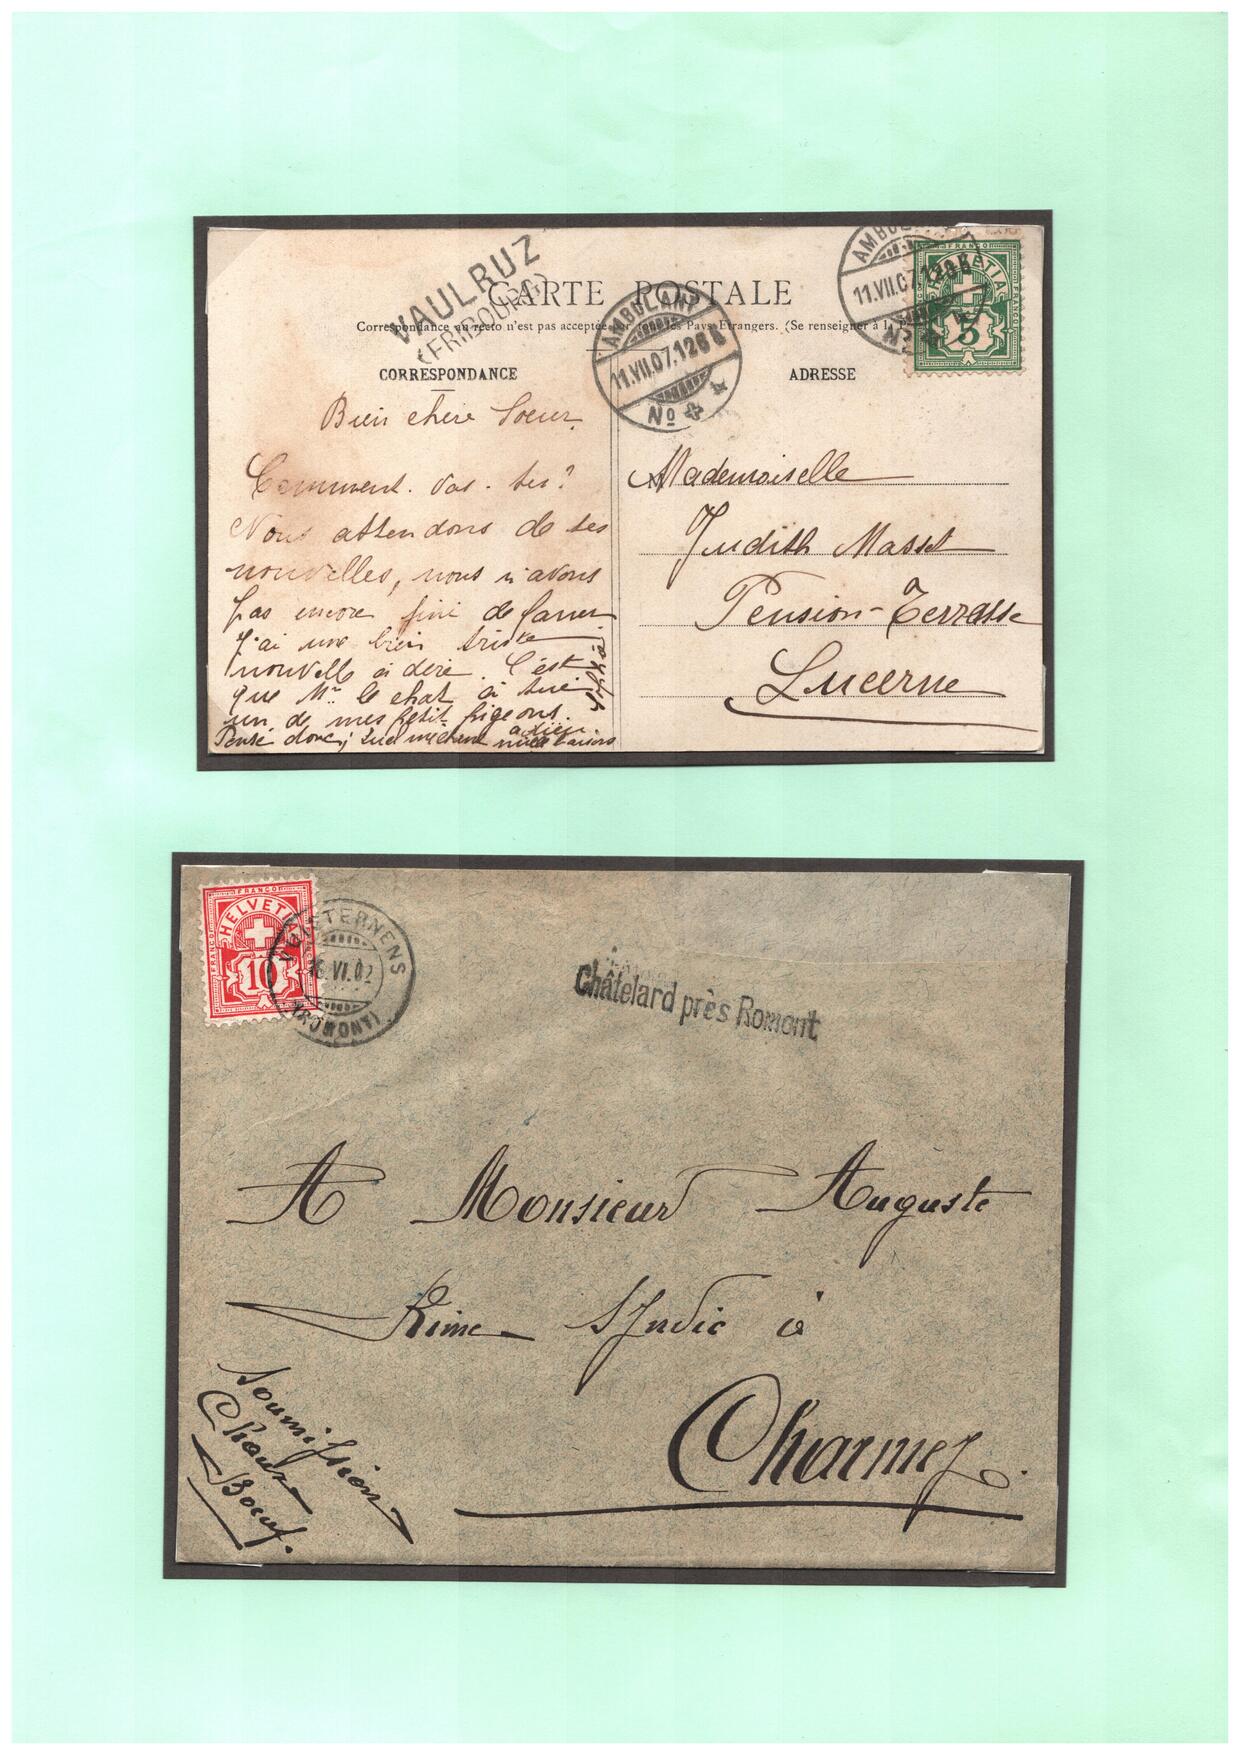 VAULRUZ
(FRIBOURG)
CARTE POSTALE
Correspondance au recto n'est pas acceptée par tous les Pays Etrangers. (Se renseigner à la P
AMBULANT
11.VII.07.126
No
AMBU
11.VII.07.126
No
FRANCO
HELVETIA
5
CORRESPONDANCE
ADRESSE
Bien chère Soeur,
Comment. vas. tu?
Nous attendons de tes
nouvelles, nous n'avons
pas encore fini de faner
j'ai une bien triste
nouvelle à dire. C'est
que Mr le chat à tué
un de mes petit pigeons.
Pense donc,
adieu
Mademoiselle
Judith Masset
Pension-Terrasse
Lucerne
FRANCO
HELVETIA
FRANCO
10
VUISTERNENS
16.VI.02
(ROMONT)
Châtelard près Romont
A Monsieur Auguste
Rime Syndic à
Charmey.
Soumission
Chaux
Boeuf.